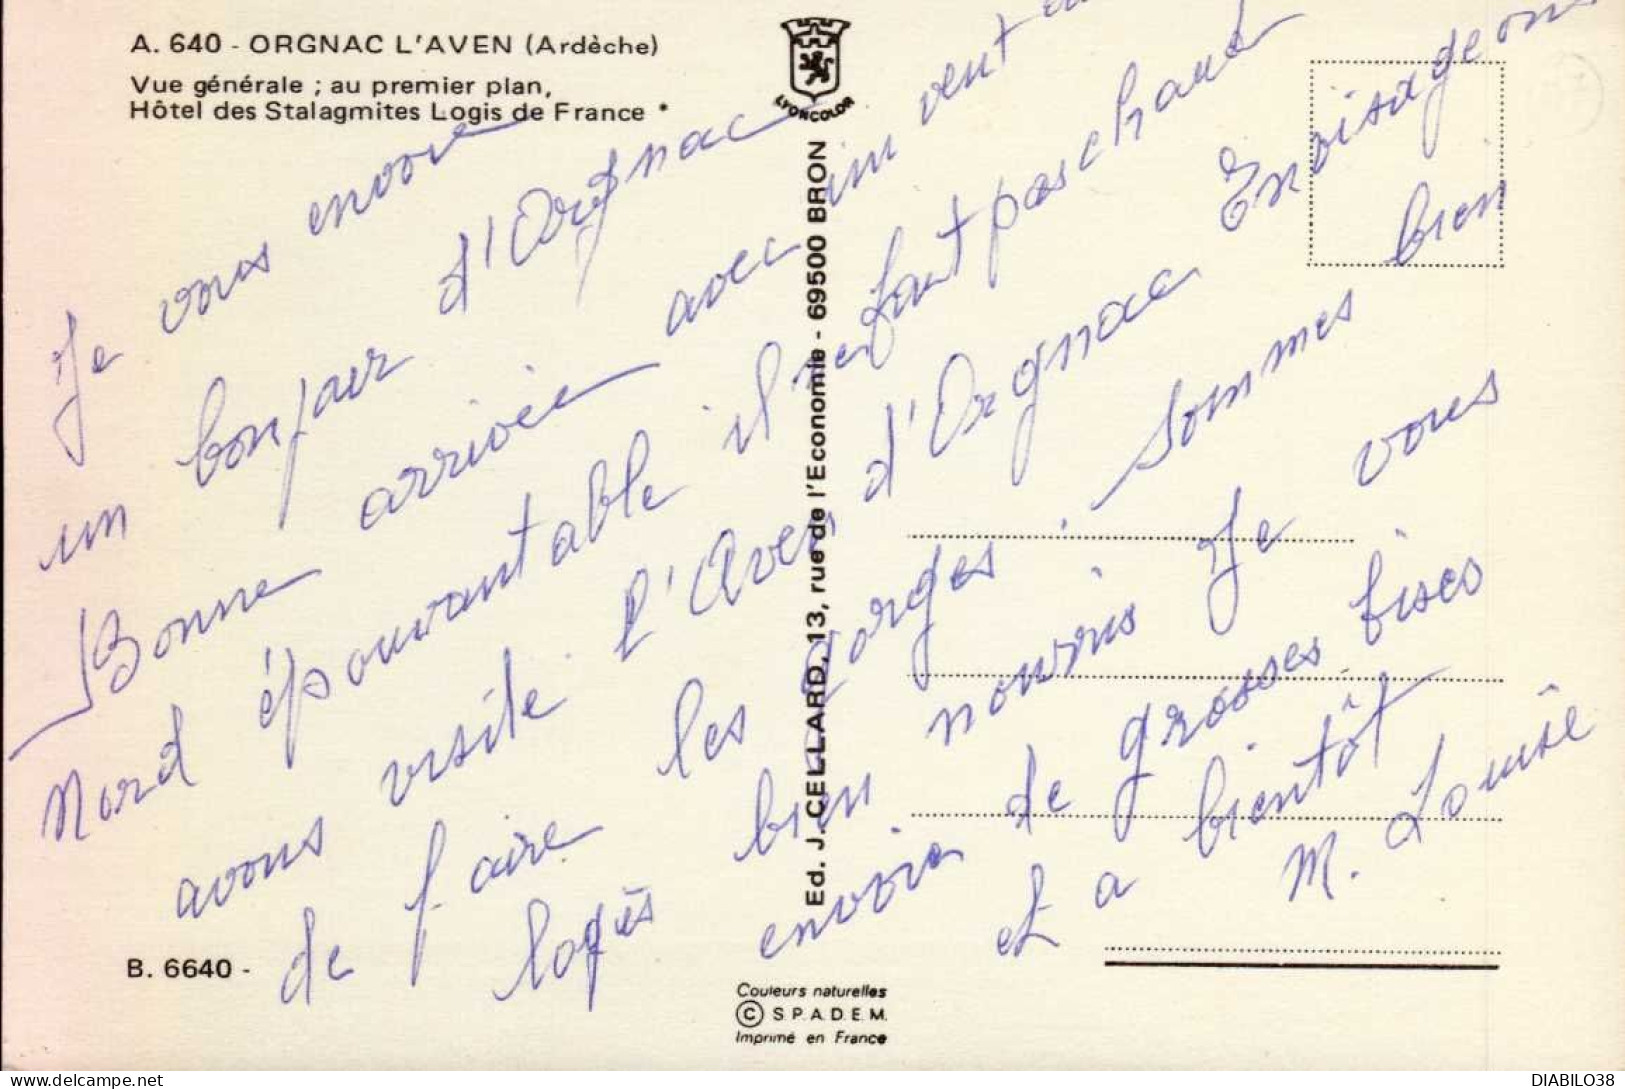 A. 640 - ORGNAC L'AVEN (Ardèche)
Vue générale ; au premier plan,
Hôtel des Stalagmites Logis de France *
LYONCOLOR
Ed. J. CELLARD, 13, rue de l'Economie - 69500 BRON
Je vous envoie
un bonjour d'Orgnac
Bonne arrivée avec un vent du
Nord épouvantable il ne faut pas chaud
avons visité l'Aven d'Orgnac Envisageons
de faire les gorges. sommes bien
logés bien nourris Je vous
envoie de grosses bises
et a bientôt
M. Louise
B. 6640 -
Couleurs naturelles
© S.P.A.D.E.M.
Imprimé en France
DIABILO38